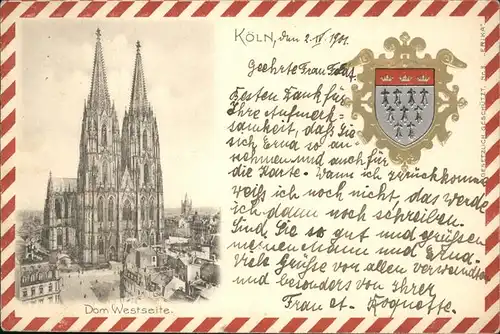 KÖLN, den 2. IV. 1901.
Geehrte Frau
Besten Dank für
Ihre Aufmerk-
samkeit, daß Sie
sich Erna so an-
nehmen und auch für
die Karte. Wann ich zurückkomme
weiß ich noch nicht, das werde
ich dann noch schreiben.
Sind Sie so gut und grüßen
meinen Mann und Erna.
Viele Grüße von allen Verwandten
und besonders von Ihrer
Frau A. Roquette.
Dom Westseite.
GESETZLICH GESCHÜTZT. "ERIKA"